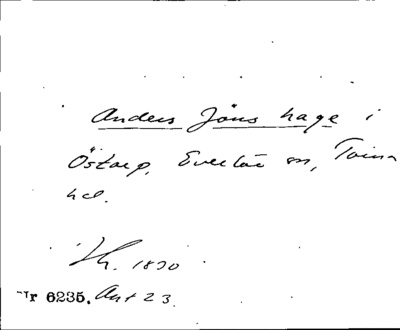 Anders Jöns hage i
Östarp, Everlöv sn, Torna
hd.
1830
Nr 6235. Ant 23.